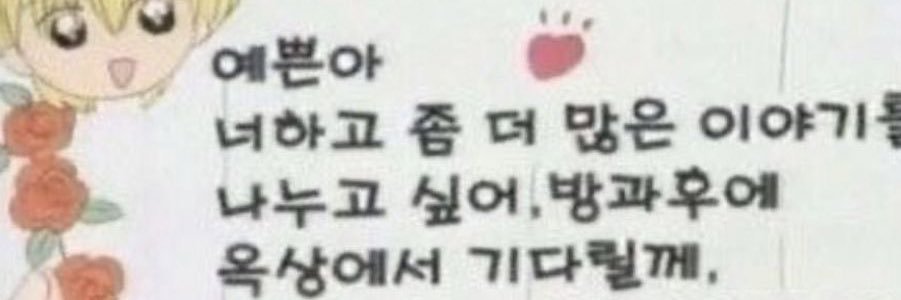 예쁜아
너하고 좀 더 많은 이야기를
나누고 싶어.방과후에
옥상에서 기다릴께.